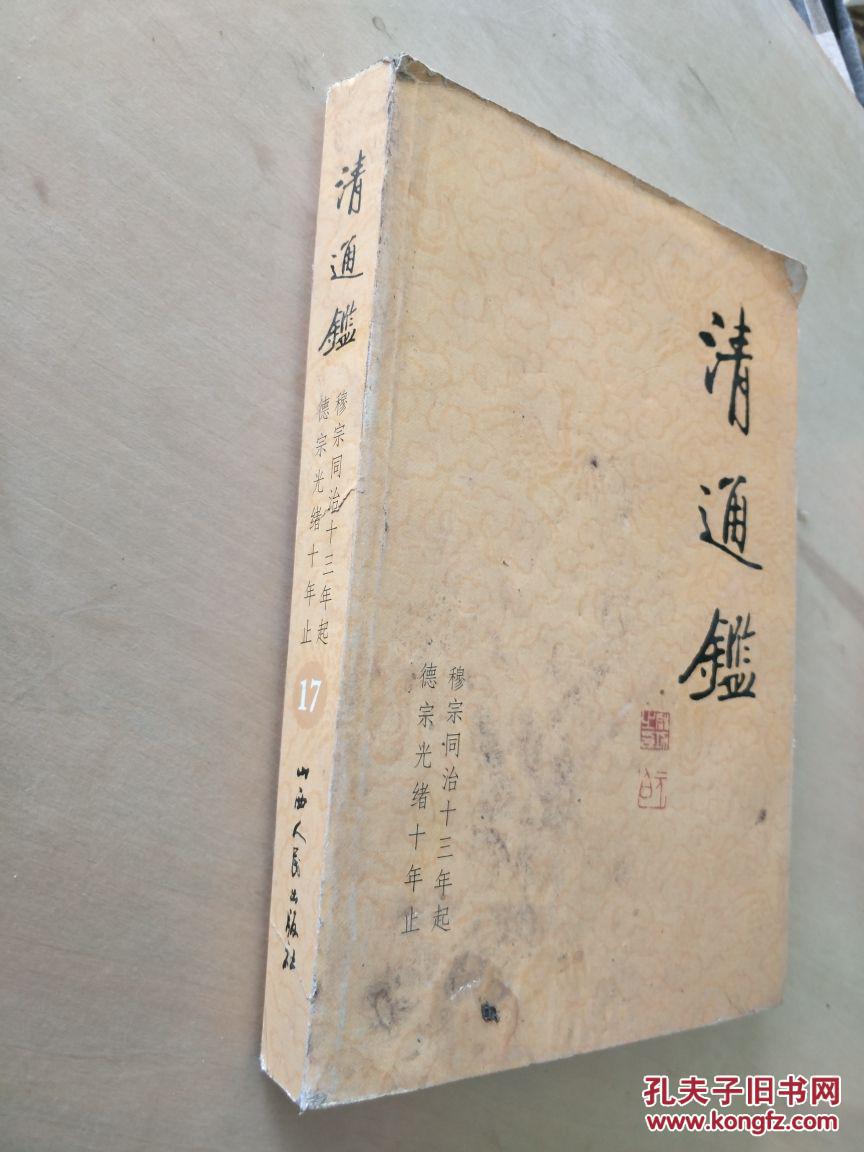 清通鑑
穆宗同治十三年起
德宗光绪十年止
17
山西人民出版社
清通鑑
穆宗同治十三年起
德宗光绪十年止
孔夫子旧书网
www.kongfz.com